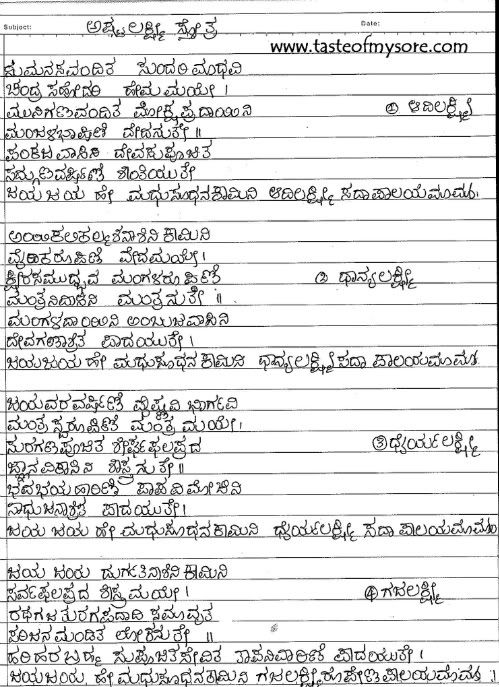 Subject: ಅಷ್ಟಲಕ್ಷ್ಮೀ ಸ್ತೋತ್ರ Date:
www.tasteofmysore.com
ಸುಮನಸವಂದಿತ ಸುಂದರಿ ಮಾಧವಿ
ಚಂದ್ರ ಸಹೋದರಿ ಹೇಮಮಯೇ ।
ಮುನಿಗಣವಂದಿತ ಮೋಕ್ಷಪ್ರದಾಯಿನಿ ① ಆದಿಲಕ್ಷ್ಮೀ
ಮಂಜುಳಭಾಷಿಣಿ ವೇದನುತೇ ॥
ಪಂಕಜವಾಸಿನಿ ದೇವಸುಪೂಜಿತ
ಸದ್ಗುಣವರ್ಷಿಣಿ ಶಾಂತಿಯುತೇ
ಜಯಜಯ ಹೇ ಮಧುಸೂಧನಕಾಮಿನಿ ಆದಿಲಕ್ಷ್ಮೀ ಸದಾಪಾಲಯಮಾಮ್
ಅಯಿಕಲಿಕಲ್ಮಶನಾಶಿನಿ ಕಾಮಿನಿ
ವೈದಿಕರೂಪಿಣಿ ವೇದಮಯೇ।
ಕ್ಷೀರಸಮುದ್ಭವ ಮಂಗಳರೂಪಿಣಿ ② ಧಾನ್ಯಲಕ್ಷ್ಮೀ
ಮಂತ್ರನಿವಾಸಿನಿ ಮಂತ್ರನುತೇ ॥
ಮಂಗಳದಾಯಿನಿ ಅಂಬುಜವಾಸಿನಿ
ದೇವಗಣಾಶ್ರಿತ ಪಾದಯುತೇ।
ಜಯಜಯ ಹೇ ಮಧುಸೂಧನಕಾಮಿನಿ ಧಾನ್ಯಲಕ್ಷ್ಮೀ ಸದಾ ಪಾಲಯಮಾಮ್
ಜಯವರವರ್ಷಿಣಿ ವೈಷ್ಣವಿ ಭಾರ್ಗವಿ
ಮಂತ್ರಸ್ವರೂಪಿಣಿ ಮಂತ್ರಮಯೇ।
ಸುರಗಣಪೂಜಿತ ಶೀರ್ಘಫಲಪ್ರದ ③ ಧೈರ್ಯಲಕ್ಷ್ಮೀ
ಜ್ಞಾನವಿಕಾಸಿನಿ ಶಾಸ್ತ್ರನುತೇ॥
ಭವಭಯಹಾರಿಣಿ ಪಾಪವಿಮೋಚನಿ
ಸಾಧುಜನಾಶ್ರಿತ ಪಾದಯುತೇ।
ಜಯ ಜಯ ಹೇ ಮಧುಸೂಧನಕಾಮಿನಿ ಧೈರ್ಯಲಕ್ಷ್ಮೀ ಸದಾ ಪಾಲಯಮಾಮ್
ಜಯ ಜಯ ದುರ್ಗತಿನಾಶಿನಿ ಕಾಮಿನಿ
ಸರ್ವಫಲಪ್ರದ ಶಾಸ್ತ್ರಮಯೇ। ④ ಗಜಲಕ್ಷ್ಮೀ
ರಥಗಜತುರಗಪದಾದಿ ಸಮಾವೃತ
ಪರಿಜನಮಂಡಿತ ಲೋಕನುತೇ ॥
ಹರಿಹರಬ್ರಹ್ಮ ಸುಪೂಜಿತಸೇವಿತ ತಾಪನಿವಾರಿಣಿ ಪಾದಯುತೇ।
ಜಯಜಯ ಹೇ ಮಧುಸೂಧನಕಾಮಿನಿ ಗಜಲಕ್ಷ್ಮೀರೂಪೇಣ ಪಾಲಯಮಾಮ್ ॥